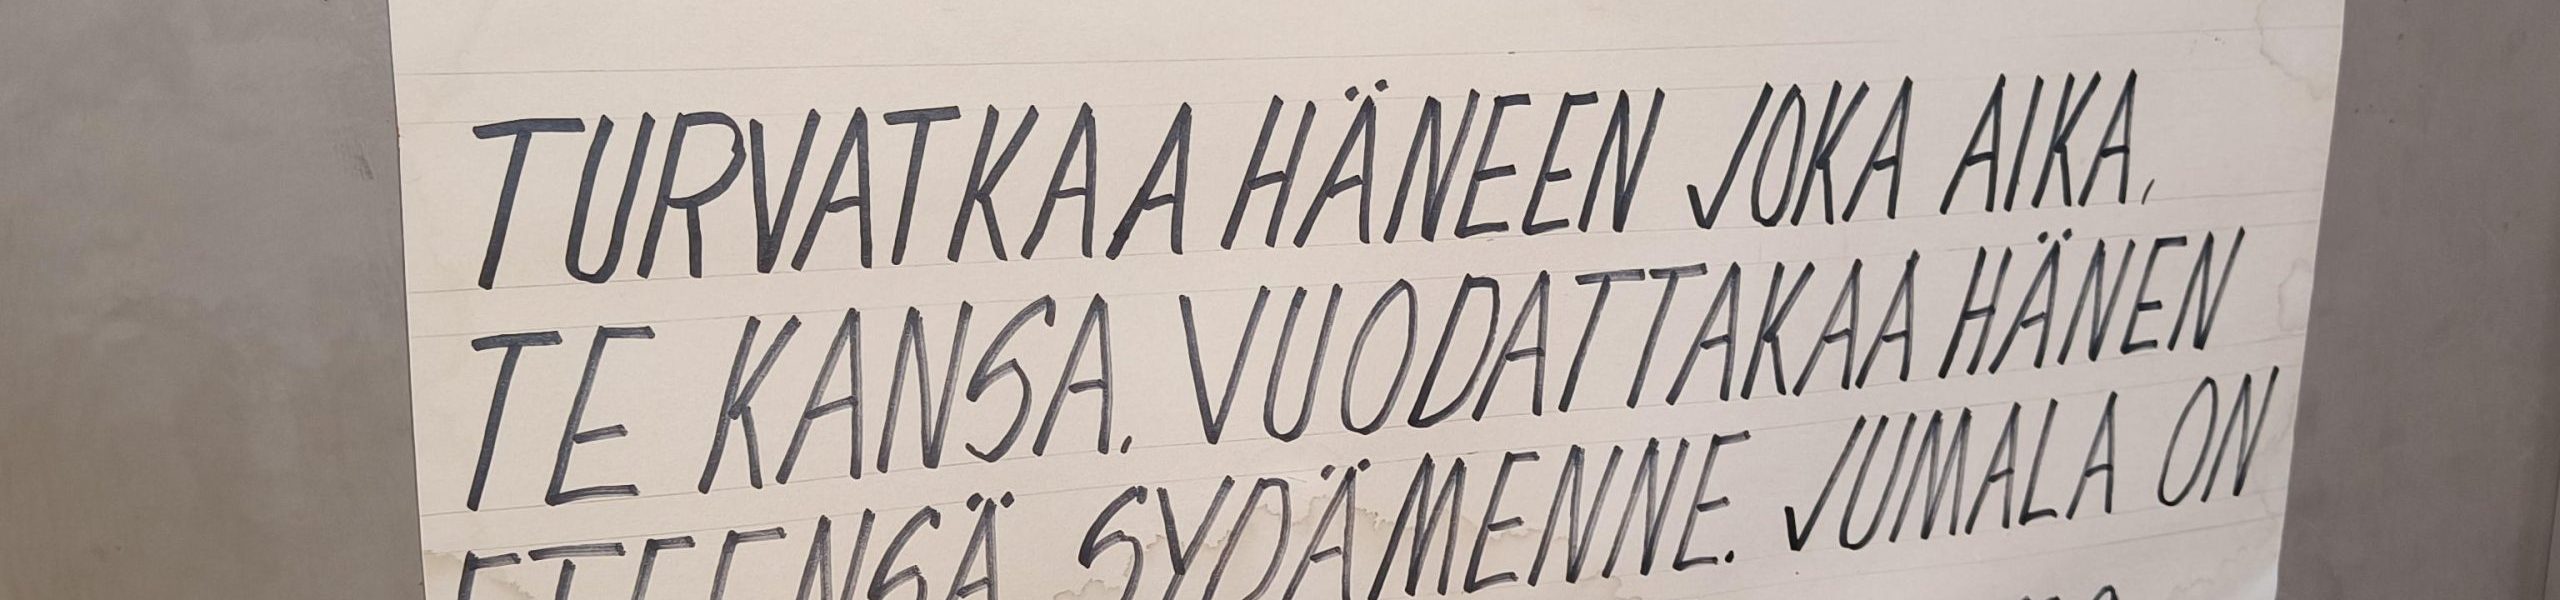 TURVATKAA HÄNEEN JOKA AIKA,
TE KANSA, VUODATTAKAA HÄNEN
ETEENSÄ SYDÄMENNE. JUMALA ON